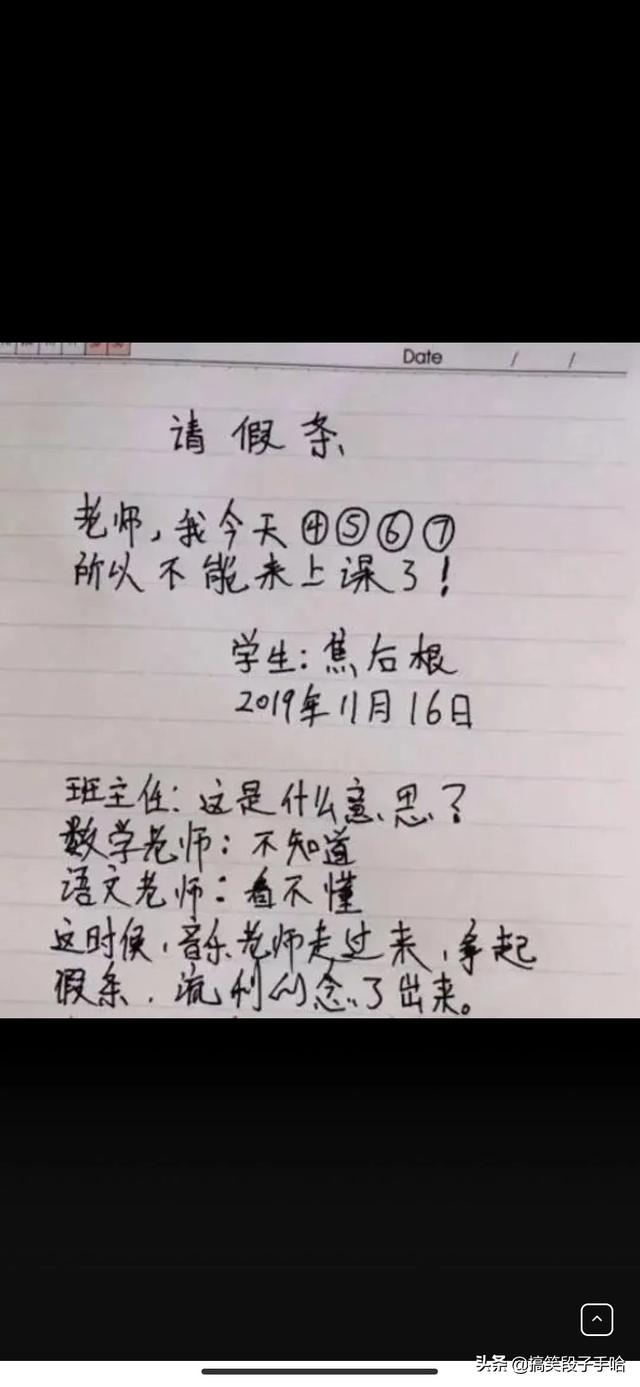 Date / /
请假条
老师,我今天④⑤⑥⑦
所以不能来上课了!
学生:焦后根
2019年11月16日
班主任:这是什么意思?
数学老师:不知道
语文老师:看不懂
这时候,音乐老师走过来,拿起
假条,流利的念了出来。
头条 @搞笑段子手哈